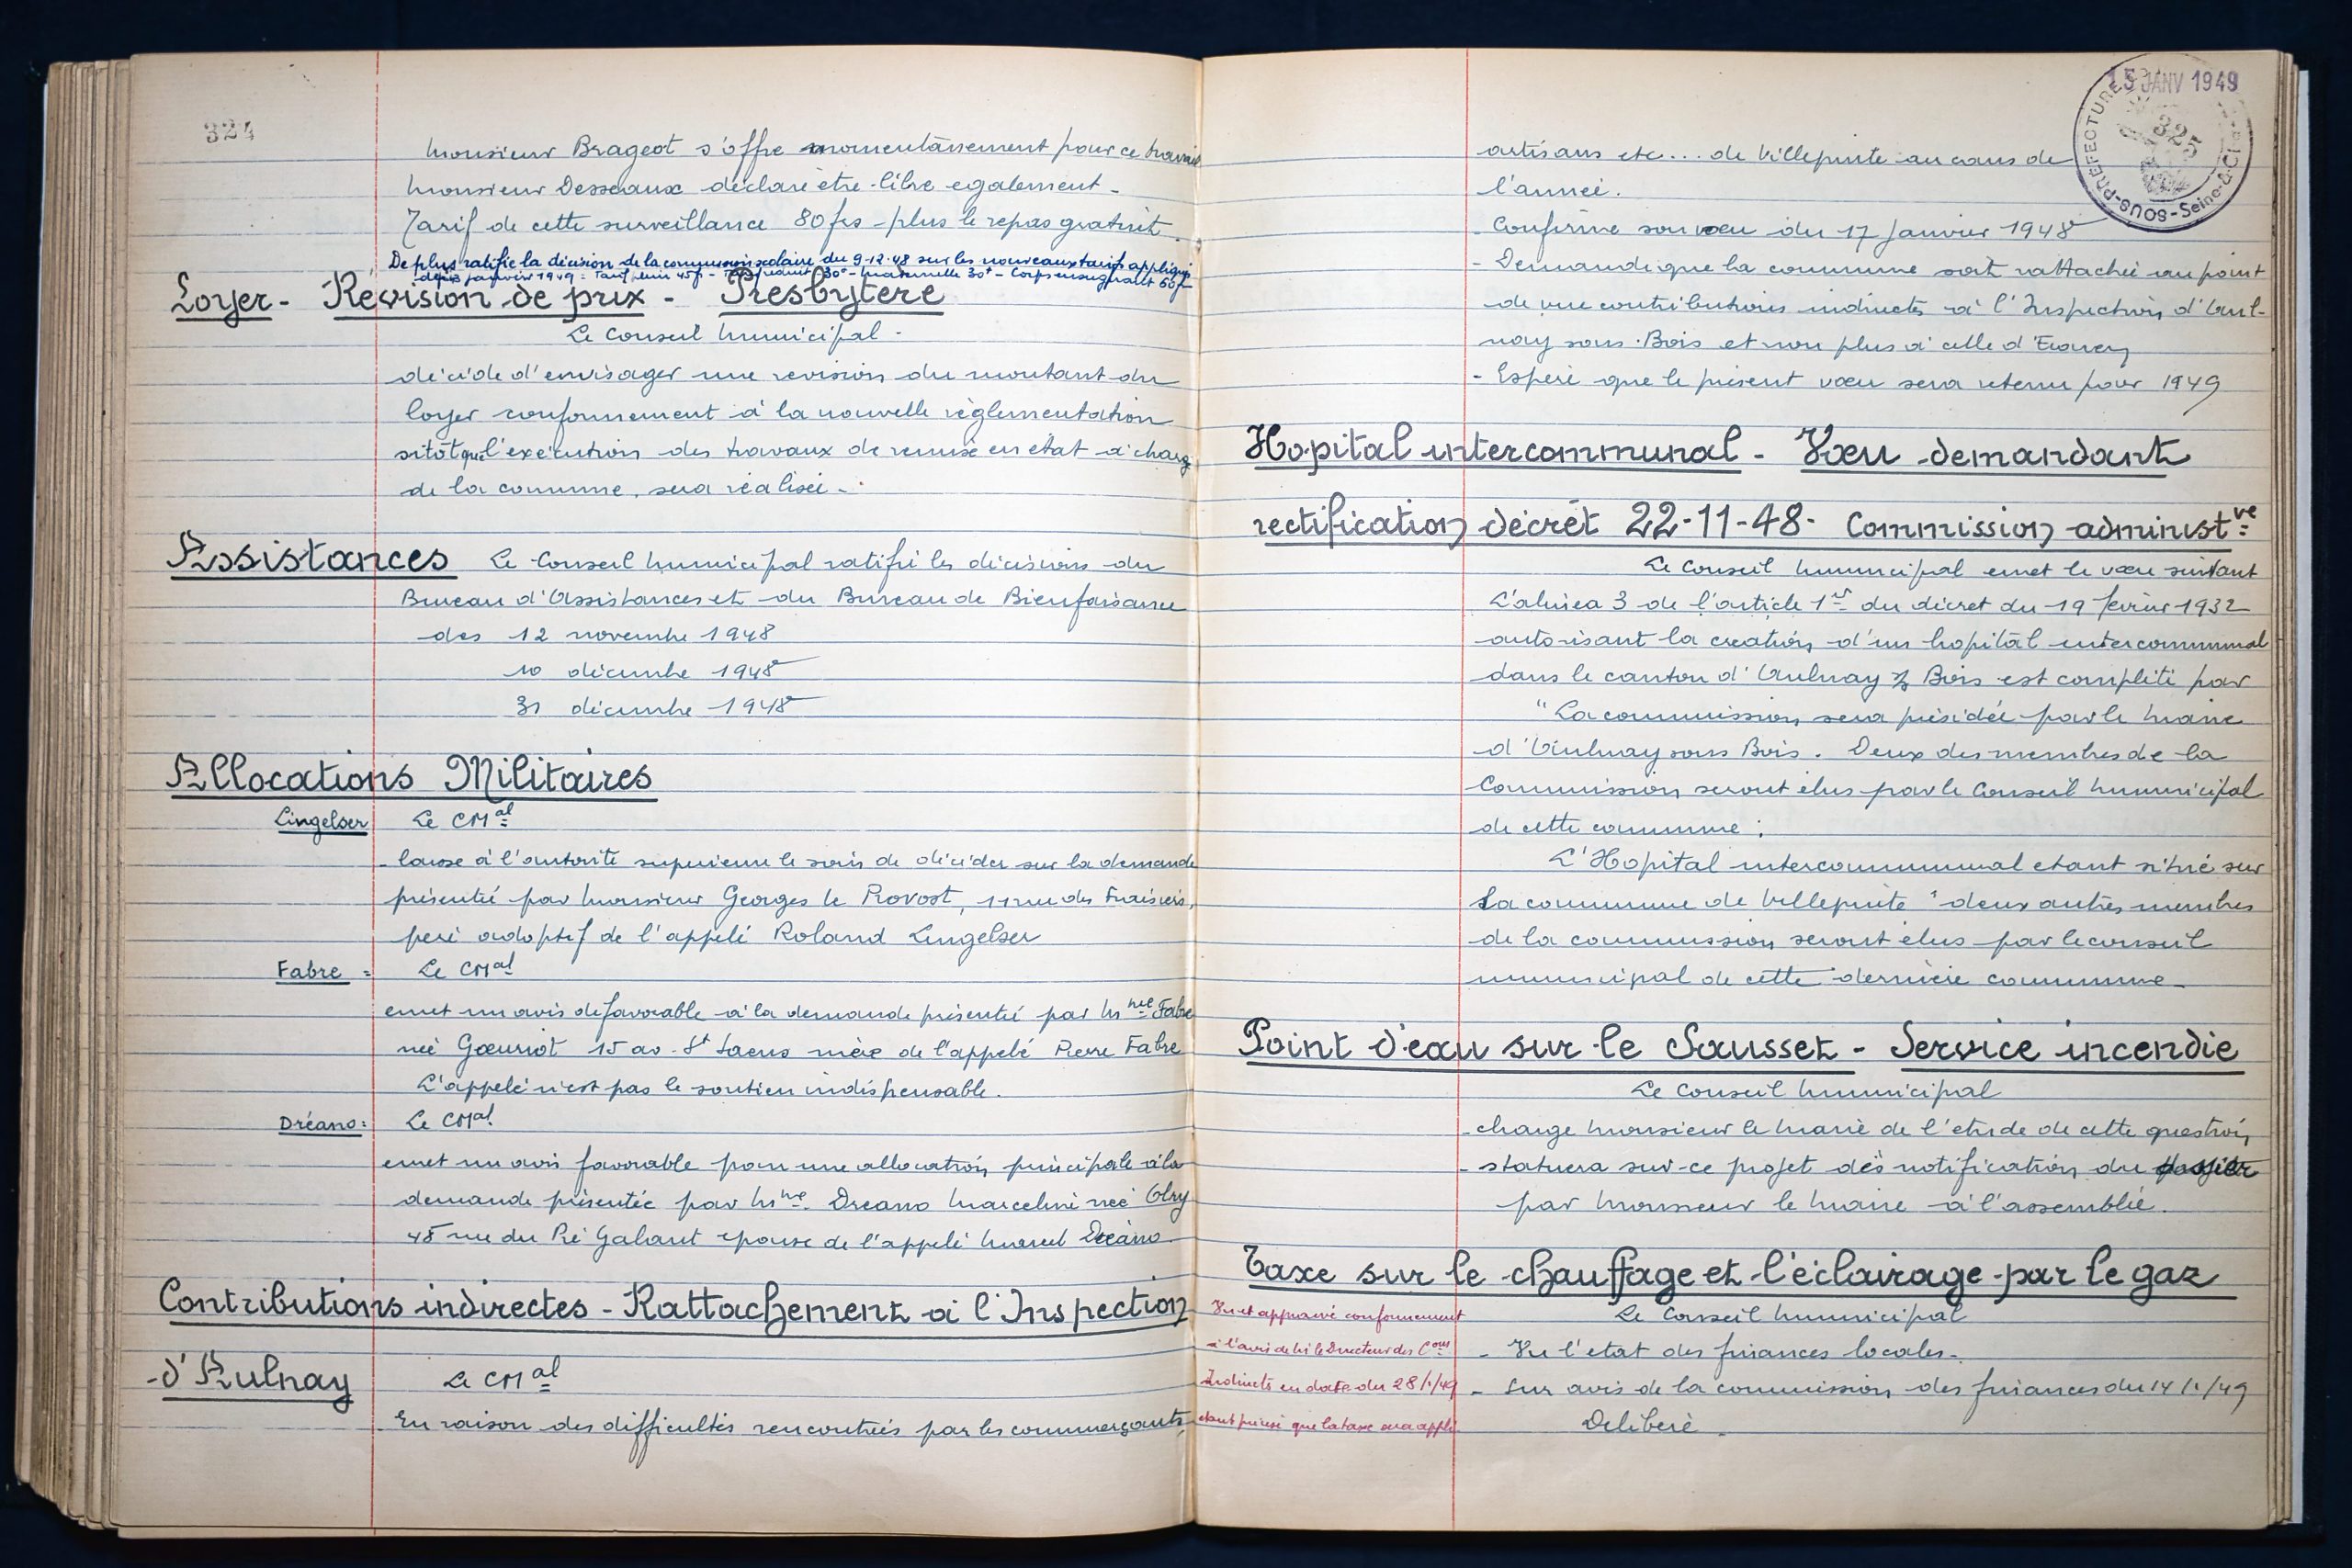 324
Monsieur Brageot s'offre momentanement pour ce travail
Monsieur Desseaux déclare être libre egalement -
Tarif de cette surveillance 80 frs - plus le repas gratuit.
De plus ratifie la décision de la commission scolaire du 9.12.48 sur les nouveaux tarifs appliqués
depuis janvier 1949 : Tarif plein 45 f - Tarif reduit 30f - Maternelle 30f - Corps enseignant 60 f
Loyer - Révision de prix - Presbytere
Le Conseil Municipal -
décide d'envisager une revision du montant du
loyer conformement à la nouvelle règlementation
sitôt que l'exécution des travaux de remise en état à charge
de la commune, sera réalisée -
Assistances Le Conseil Municipal ratifie les décisions du
Bureau d'Assistances et du Bureau de Bienfaisance
des 12 novembre 1948
10 décembre 1948
31 décembre 1948
Allocations Militaires
Lingelser Le CMal
- laisse à l'autorité superieure le soin de décider sur la demande
présentée par Monsieur Georges le Provost, 11 rue des Fraisiers,
père adoptif de l'appelé Roland Lingelser
Fabre = Le CMal
emet un avis defavorable à la demande présentée par Mme Fabre
née Gœuriot 15 av. St Saens mère de l'appelé Pierre Fabre
L'appelé n'est pas le soutien indispensable.
Dréano: Le CMal
emet un avis favorable pour une allocation principale à la
demande présentée par Mme. Dreano Marceline née Olry
45 rue du Pré Galant epouse de l'appelé Marcel Dréano
Contributions indirectes - Rattachement à l'Inspection
d'Aulnay Le CMal
En raison des difficultés rencontrées par les commerçants,
15 JANV 1949
325
SOUS-PREFECTURE
Seine-&-Oise
artisans etc... de Villepinte au cours de
l'année.
- Confirme son vœu du 17 Janvier 1948
- Demande que la commune soit rattachée au point
de vue contributions indirectes à l'Inspection d'Aul-
nay sous-Bois et non plus à celle d'Ecouen
- Espère que le présent vœu sera retenu pour 1949
Hopital intercommunal - Vœu demandant
rectification décret 22-11-48- Commission administve
Le Conseil Municipal emet le vœu suivant
L'alinea 3 de l'article 1er du décret du 19 février 1932
autorisant la creation d'un hopital intercommunal
dans le canton d'Aulnay s/ Bois est complété par
"La commission sera présidée par le Maire
d'Aulnay sous Bois. Deux des membres de la
Commission seront élus par le Conseil Municipal
de cette commune ;
L'Hopital intercommunal etant situé sur
la commune de Villepinte " deux autres membres
de la commission seront élus par le conseil
municipal de cette dernière commune -
Point d'eau sur le Sausset - Service incendie
Le Conseil Municipal
- charge Monsieur le Maire de l'étude de cette question,
- statuera sur ce projet dès notification du dossier
par Monsieur le Maire à l'assemblée.
Taxe sur le chauffage et l'éclairage par le gaz
Le Conseil Municipal
Vu et approuvé conformement
à l'avis de M le Directeur des Cons
Indirects en date du 28/1/49
étant précisé que la taxe sera appli
- Vu l'etat des finances locales -
- Sur avis de la commission des finances du 14/1/49
Délibère